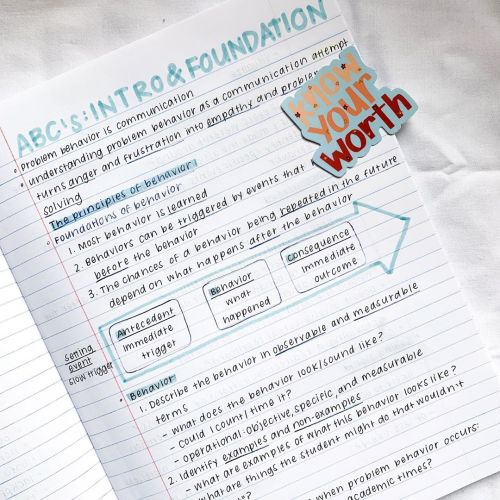 ABC's: INTRO & FOUNDATION
• problem behavior is communication
• understanding problem behavior as a communication attempt
turns anger and frustration into empathy and problem
solving
The principles of behavior:
• Foundations of behavior
1. Most behavior is learned
2. Behaviors can be triggered by events that
before the behavior
3. The chances of a behavior being repeated in the future
depend on what happens after the behavior
setting
event
slow trigger
Antecedent
immediate
trigger
Behavior
what
happened
consequence
immediate
outcome
• Behavior
1. Describe the behavior in observable and measurable
terms
- what does the behavior look/sound like?
- Could I count/time it?
- operational: objective, specific, and measurable
2. Identify examples and non-examples
- what are examples of what this behavior looks like?
- what are things the student might do that wouldn't
when problem behavior occurs:
academic times?
know
your
worth